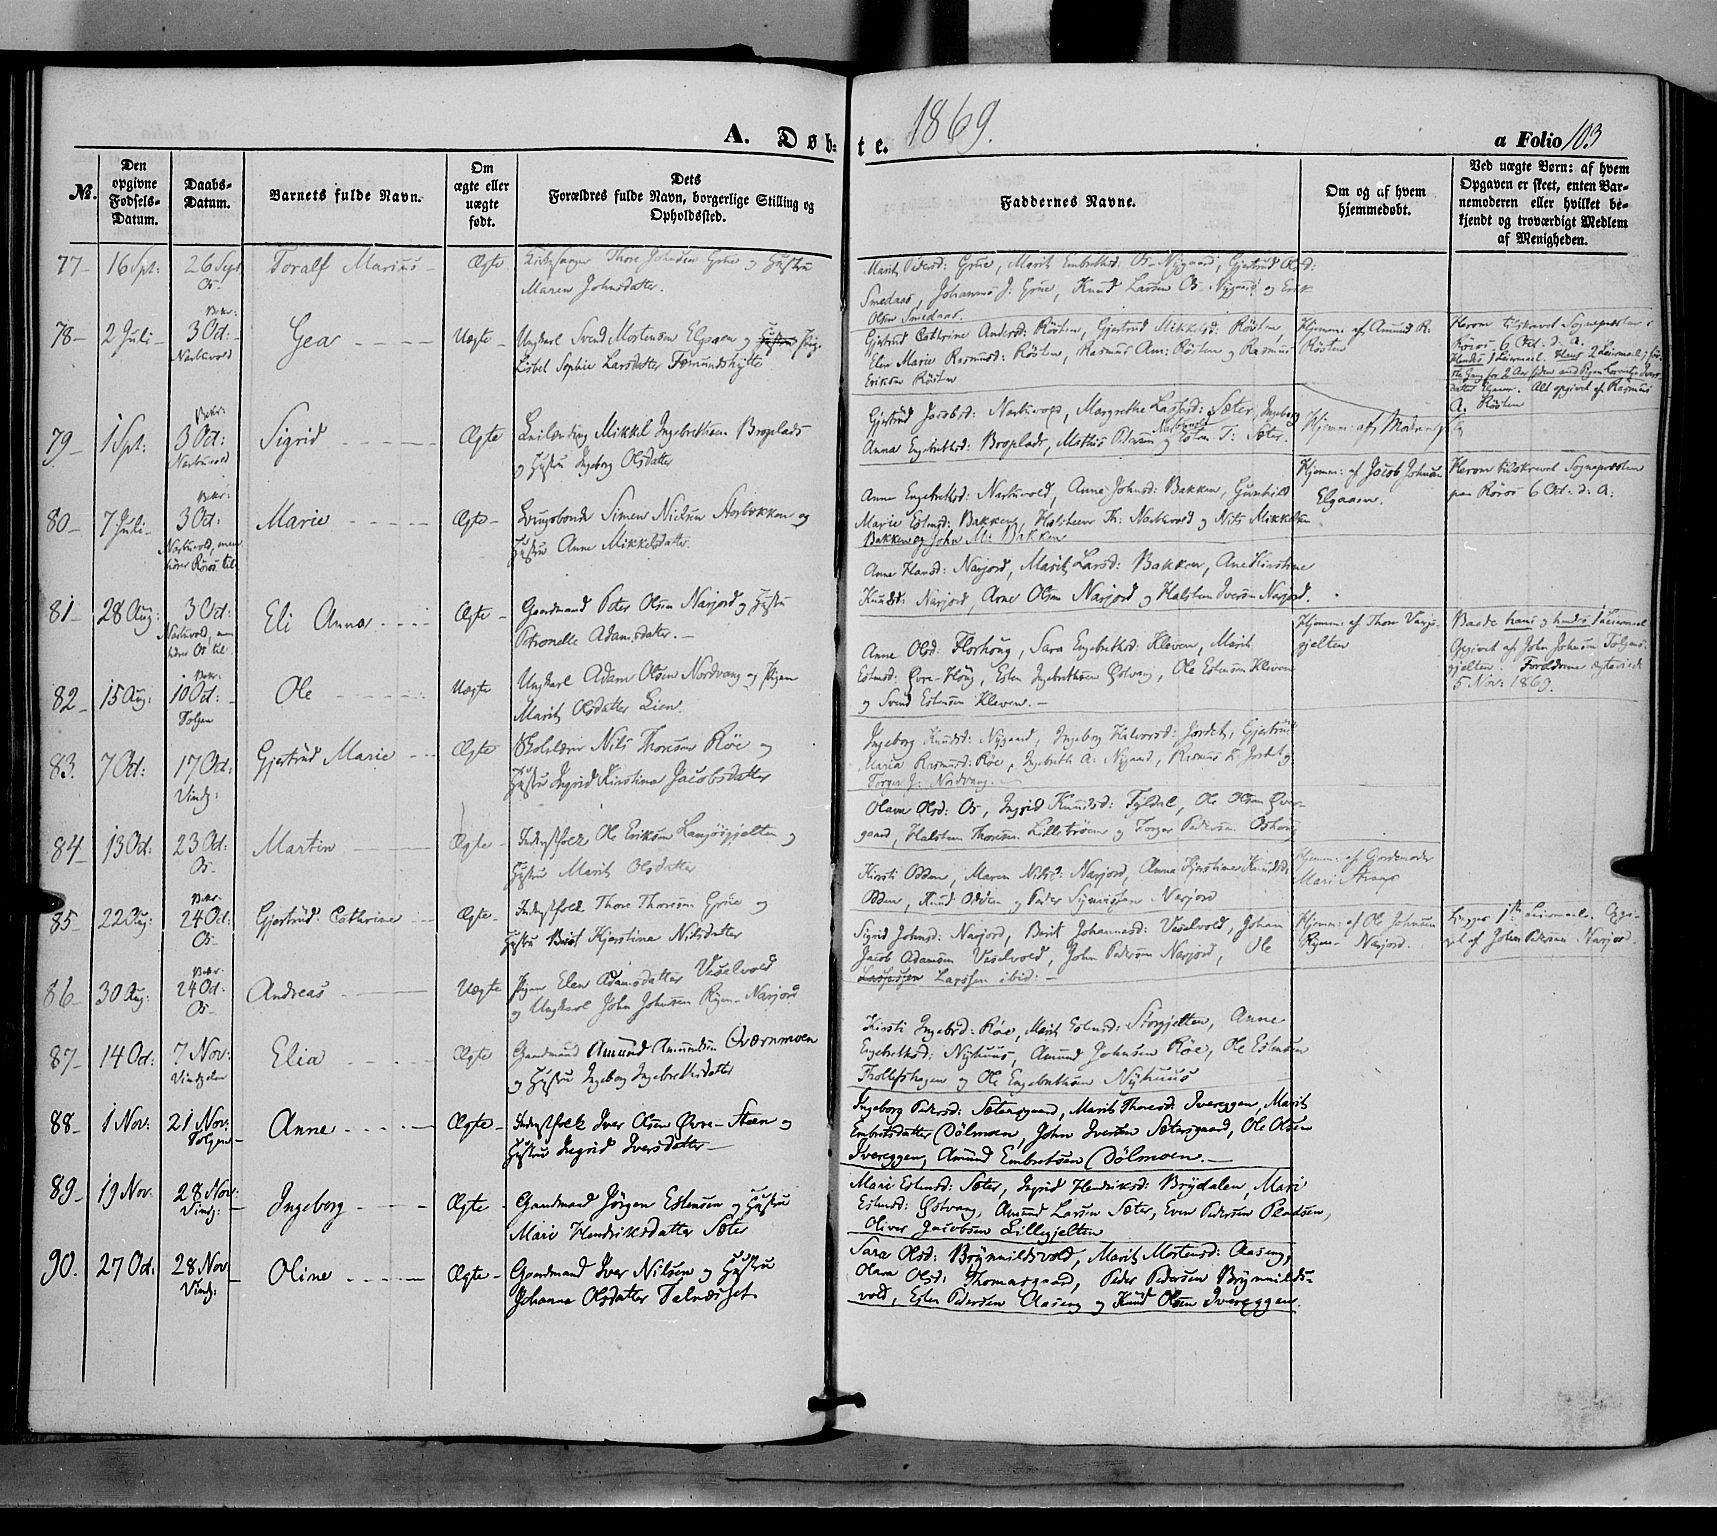 A. Døbte. 1869. a Folio 103
№. Den opgivne Fødsels-Datum. Daabs-Datum. Barnets fulde Navn. Om ægte eller uægte født. Dets Forældres fulde Navn, borgerlige Stilling og Opholdssted. Faddernes Navne. Om og af hvem hjemmedøbt. Ved uægte Børn: af hvem Opgaven er skeet, enten Barnemoderen eller hvilket bekjendt og troværdigt Medlem af Menigheden.
77 16 Spt: 26 Sept Os Toralf Marius Ægte Kirkesanger Thore Johnsen Grue og Hustru
Maren Johnsdatter.
Marit Pedersd: Grue, Marit Embrethsd: Os-Nygaard, Gjertrud Olsd:
Smedaas, Johannes J: Grue, Knud Larsen Os-Nygaard og Erik
Olsen Smedaas.
78 2 Juli Bekr: 3 Oct: Narbuvold Gea Uægte Ungkarl Svend Mortensen Elgaaen og Hustru Pige
Lisbet Sophie Larsdatter Fæmundshytte
Gjertrud Cathrine Andersd: Røsten, Gjertrud Mikkelsd: Røsten,
Elen Marie Rasmusd: Røsten, Rasmus Am: Røsten og Rasmus
Eriksen Røsten
Hjemm: af Amund R.
Røsten
Herom tilskrevet Sognepræsten i
Røros 6 Oct. d. A.
Hendes 1 Leiermaal. Hans 2 Leiermaal,
Alt opgivet af Rasmus
A. Røsten
79 1 Spt: Bekr: 3 Oct: Narbuvold Sigrid Ægte Leilending Mikkel Ingebrethsen Broplads
og Hustru Ingeborg Olsdatter
Gjertrud Jacobsd: Narbuvold, Margrethe Larsesd: Sæter, Ingeborg
Anna Engebrethsd: Broplads, Mathis Pedersen Narbuvold og Esten T: Sæter.
Hjemm: af Moderen selv
80 7 Juli Bekr: 3 Oct: Narbuvold, men hører Røros til Marie Ægte Brugsbonde Simen Nielsen Storbekken og
Hustru Anne Mikkelsdatter
Anne Engebrethsd: Narbuvold, Anne Johnsd: Bakken, Gunhild
Marie Estensd: Bakken, Halsteen Th: Narbuvold og Nils Mikkelsen
Bakken og John M: Bakken
Hjemm: af Jacob Johnsen
Elgaaen.
Herom tilskrevet Sognepræsten
paa Røros 6 Oct: d: A:
81 28 Aug: 3 Oct: Narbuvold, men hører Os til Eli Anna Ægte Gaardmand Peter Olsen Narjord og Hustru
Petronelle Adamsdatter.
Anne Hansd: Narjord, Marit Larsd: Bakken, Ane Kirstine
Knudsd: Narjord, Arne Olsen Narjord og Halsten Iversen Narjord.
82 15 Aug: Bekr: 10 Oct: Tolgen Ole Uægte Ungkarl Adam Olsen Nordvang og Pigen
Marit Olsdatter Lien.
Anne Olsd: Florhoug, Sara Engebrethsd: Kleven, Marit
Estensd: Øvre-Houg, Esten Ingebrethsen Østvang, Ole Estensen Kleven
og Svend Estensen Kleven.
Hjemm: af Thore
gjelten
Baade hans og hendes 1 Leiermaal
Opgivet af John Johnsen Tolgens-
gjelten. Forældrene ægteviede
5 Nov: 1869.
83. 7 Oct: 17 Oct: Vindg: Gjertrud Marie Ægte Skolelærer Nils Thoresen Røe og
Hustru Ingrid Kirstina Jacobsdatter
Ingeborg Knudsd: Nygaard, Ingeborg Halvorsd: Jordet, Gjertrud
Maria Rasmusd: Røe, Ingebreth A: Nygaard, Rasmus E. Jordet og
Torger J: Nordvang.
84 13 Oct: 23 Oct: Os Martin Ægte Inderstfolk Ole Eriksen Langøsgjelten og
Hustru Marit Olsdatter
Olava Olsd: Os, Ingrid Knudsd: Tyldal, Ole Olsen Øver-
gaard, Halsteen Thoresen Lillebrøen og Torger Pedersen Oshoug
85 22 Aug: Bekr: 24 Oct: Os Gjertrud Cathrine Ægte Inderstfolk Thore Thoresen Grue og
Hustru Berit Kjerstina Nilsdatter
Kirsti Odden, Maren Nilsd: Narjord, Anna Kjerstine Knudsd:
Odden, Knud Odden og Peder Narjord
Hjemm: af Gjordemoder
Mari
86 30 Aug: Bekr. 24 Oct. Os Andreas Uægte Pigen Elen Adamsdatter Viselvold
og Ungkarl John Johnsen Ryen-Narjord
Sigrid Johnsd: Narjord, Berit Johannesd: Viselvold, Johan
Jacob Adamsen Viselvold, John Pedersen Narjord, Ole
Larsesen Larssen ibid:
Hjemm: af Ole Johnsen
Ryen-Narjord.
Begges 1ste Leiermaal. Opgi-
vet af John Pedersen Narjord.
87 14 Oct: 7 Nov: Vindgelen Elia Ægte Gaardmand Amund Amundsen Qværnmoen
og Hustru Ingeborg Ingebrethsdatter
Kirsti Ingebrd: Røe, Marit Estensd: Storgjelten, Anne
Engebrethsd: Nyhuus, Amund Johnsen Røe, Ole Estensen
Trollshagen og Ole Engebrethsen Nyhuus
88 1 Nov: 21 Nov: Tolgen Anne Ægte Inderstfolk Iver Olsen Øvre-Steen og
Hustru Ingrid Iversdatter
Ingeborg Pedersd: Sætersgaard, Marit Thoresd: Ivereggen, Marit
Embretsdatter Dølmoen, John Iversen Sætersgaard, Ole Olsen
Ivereggen, Amund Embretsen Dølmoen.
89 19 Nov. 28 Nov: Vindg: Ingeborg Ægte Gaardmand Jørgen Estensen og Hustru
Mari Hendriksdatter Sæter
Mari Estensd: Sæter, Ingrid Hendriksd: Brydalen, Mari
Estensd: Østvang, Amund Larsen Sæter, Even Pedersen Pladsen,
Oliver Jacobsen Lillegjelten
90. 27 Oct: 28 Nov Vindg: Oline Ægte Gaardmand Iver Nilsen og Hustru
Johanna Olsdatter Telneset
Sara Olsd: Brynnildsvold, Marit Mortensd: Aaseng,
Olava Olsd: Thomasgaard, Peder Pedersen Brynnilds-
vold, Esten Pedersen Aaseng og Knud Olsen Ivereggen.